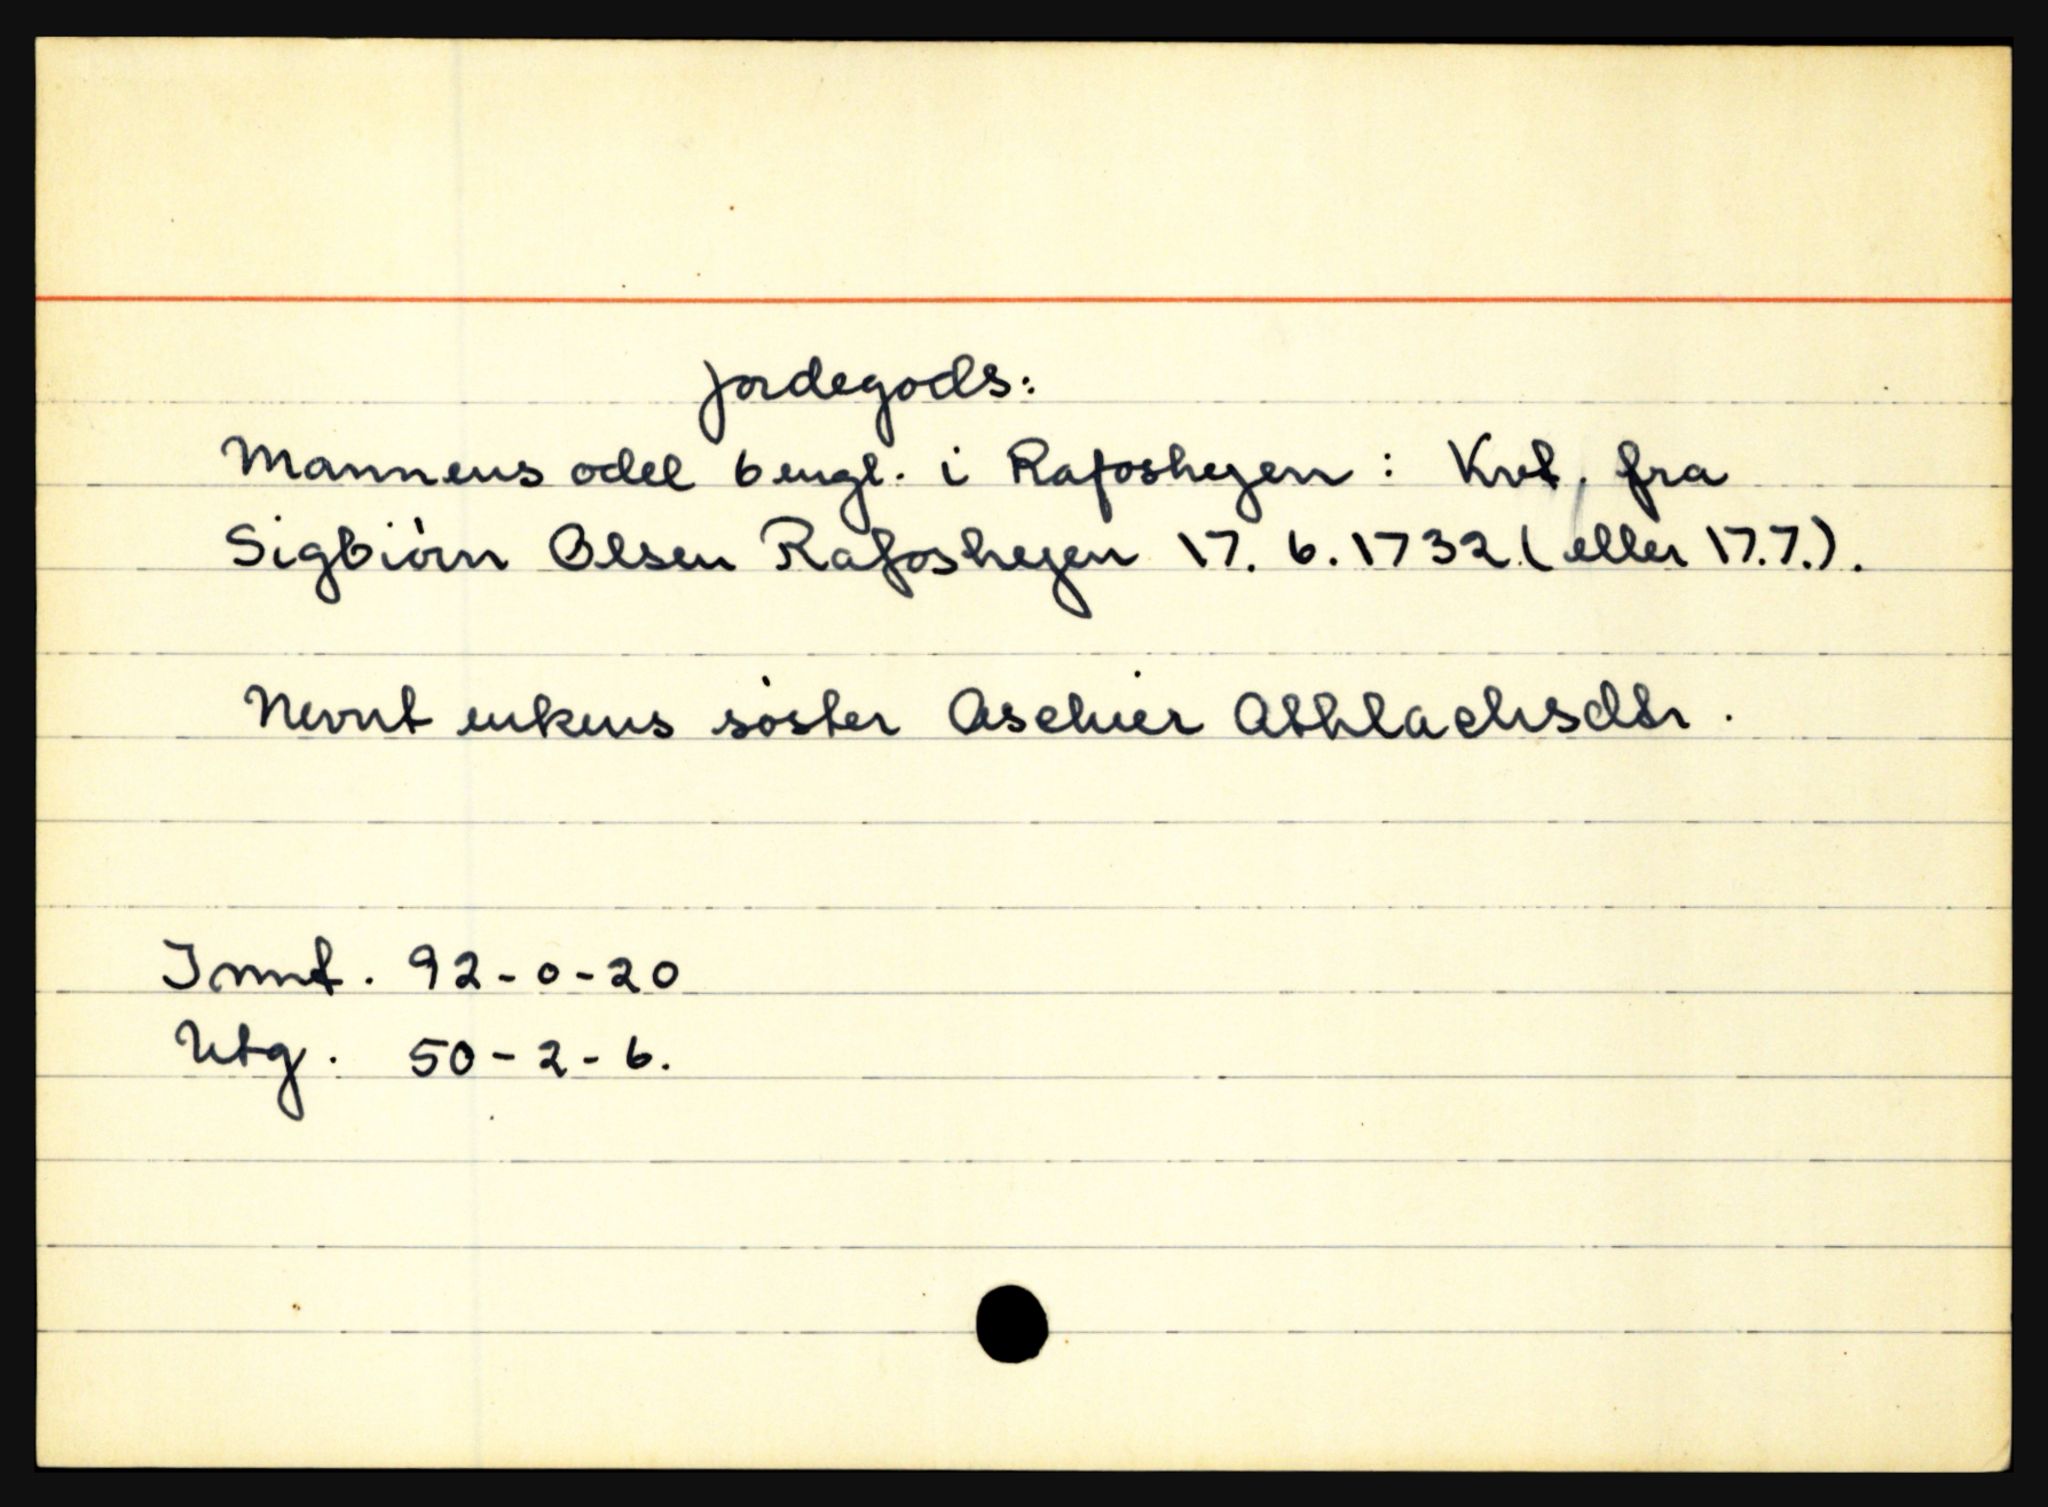 jordegods:
Mannens odel 6 engl. i Rafoshejen : Kvt. fra
Sigbiørn Olsen Rafoshejen 17. 6. 1732 (eller 17.7.).
Nevnt enkens søster Aschier Athlachsdtr.
Innt. 92-0-20
Utg. 50-2-6.